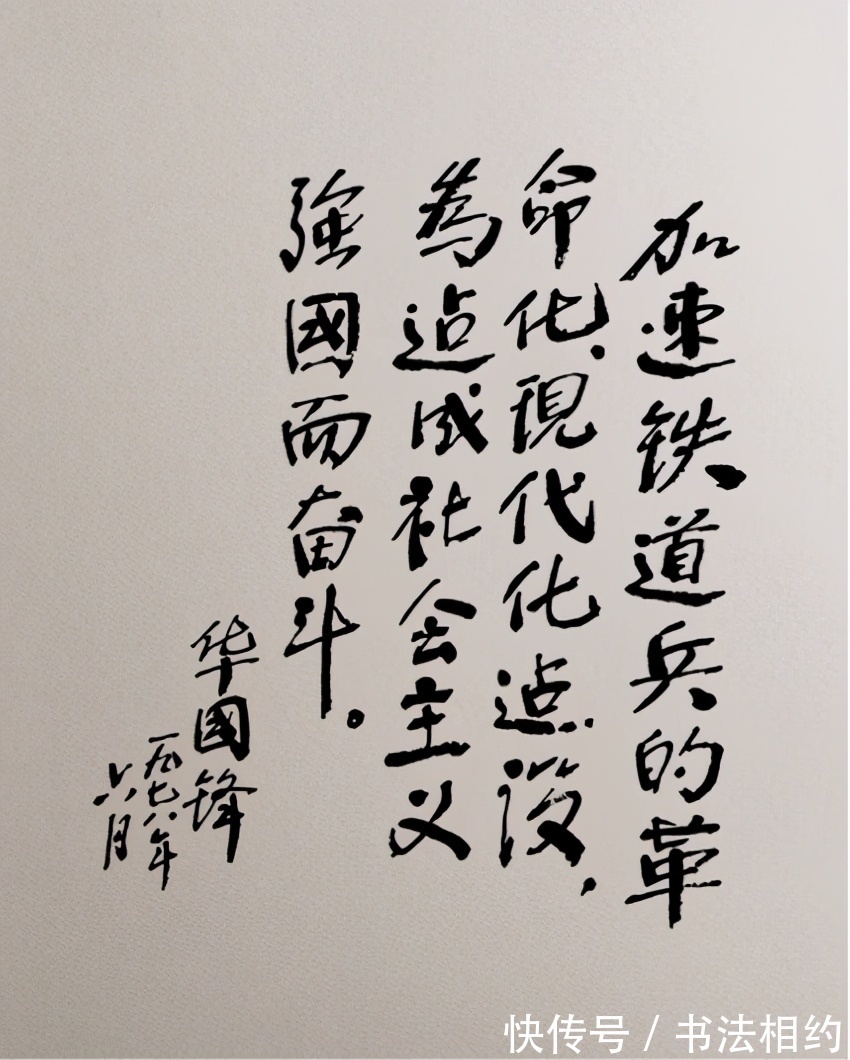 加速铁道兵的革
命化、现代化建设,
為造成社会主义
強國而奋斗。
华國锋
一九七八年
六月
快传号 / 书法相约